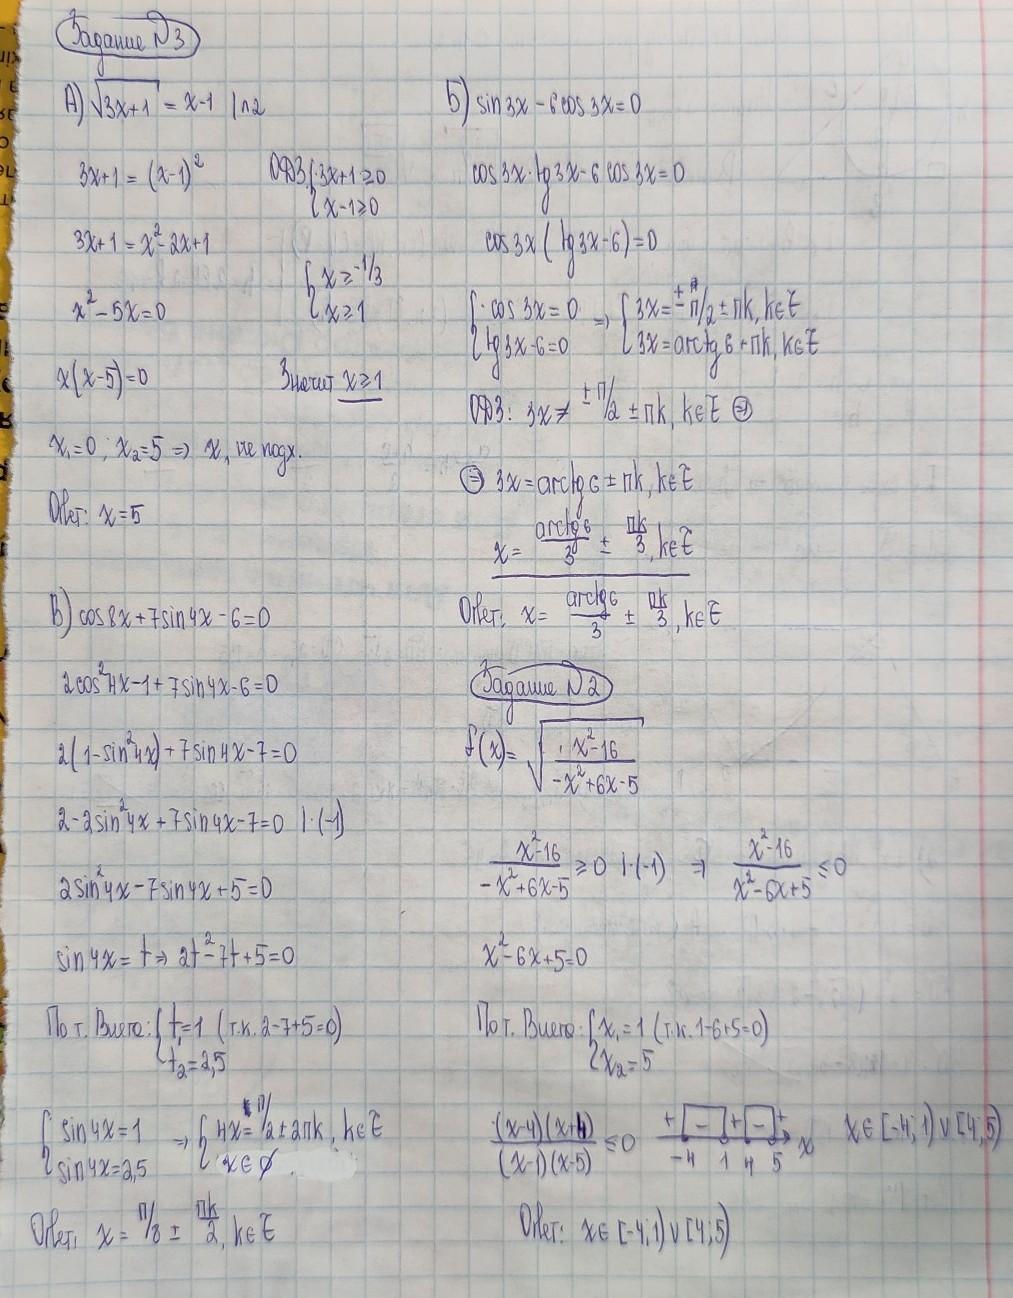 Задание N3
А) √3x+1 = x-1 |^2
3x+1 = (x-1)²
ОДЗ { 3x+1≥0
{ x-1≥0
3x+1 = x²-2x+1
{ x≥-1/3
{ x≥1
x²-5x=0
x(x-5)=0
Значит x≥1
x₁=0; x₂=5 => x₁ не подх.
Ответ: x=5
Б) sin3x-6cos3x=0
cos3x·tg3x-6cos3x=0
cos3x(tg3x-6)=0
{ cos3x=0
{ tg3x-6=0
=> { 3x=±π/2±πk, k∈Z
{ 3x=arctg6+πk, k∈Z
ОДЗ: 3x≠±π/2±πk, k∈Z =>
=> 3x=arctg6±πk, k∈Z
x= arctg6/3 ± πk/3, k∈Z
Ответ: x= arctg6/3 ± πk/3, k∈Z
В) cos8x+7sin4x-6=0
2cos²4x-1+7sin4x-6=0
2(1-sin²4x)+7sin4x-7=0
2-2sin²4x+7sin4x-7=0 |·(-1)
2sin²4x-7sin4x+5=0
sin4x=t => 2t²-7t+5=0
По т. Виета: { t₁=1 (т.к. 2-7+5=0)
{ t₂=2,5
{ sin4x=1
{ sin4x=2,5
=> { 4x=π/2±2πk, k∈Z
{ x∈∅
Ответ: x=π/8 ± πk/2, k∈Z
Задание N2
f(x)= √(x²-16)/(-x²+6x-5)
(x²-16)/(-x²+6x-5) ≥0 |·(-1) => (x²-16)/(x²-6x+5) ≤0
x²-6x+5=0
По т. Виета: { x₁=1 (т.к. 1-6+5=0)
{ x₂=5
(x-4)(x+4)/(x-1)(x-5) ≤0
+ - + - +
-4 1 4 5 x
x∈[-4;1)∨[4;5)
Ответ: x∈[-4;1)∨[4;5)